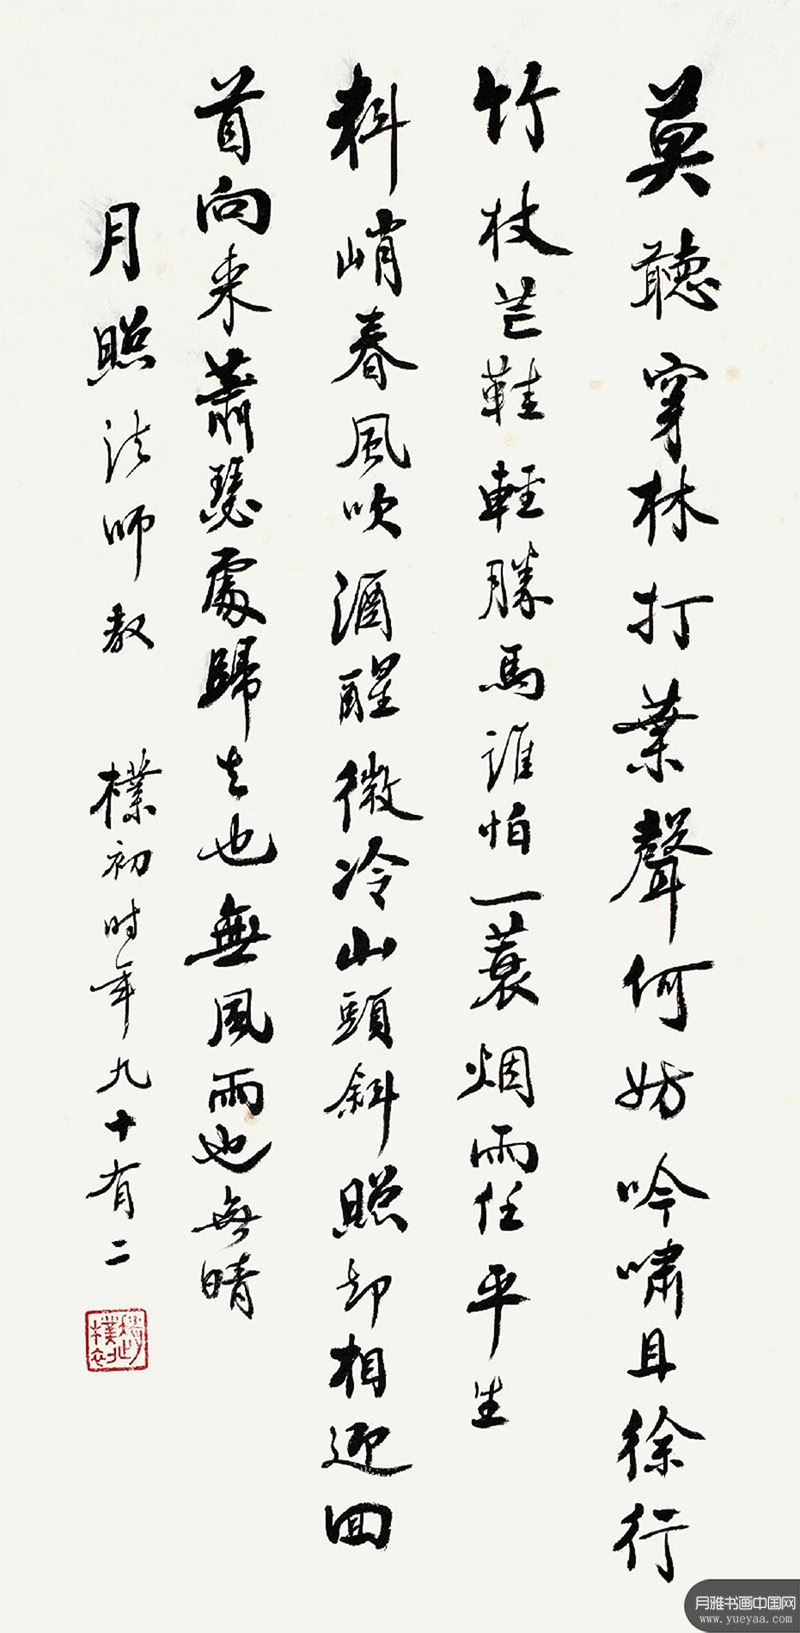 莫聽穿林打葉聲何妨吟嘯且徐行
竹杖芒鞋輕勝馬誰怕一蓑烟雨任平生
料峭春風吹酒醒微冷山頭斜照却相迎回
首向来蕭瑟處歸去也無風雨也無晴
月照法師教 樸初时年九十有二
趙樸初
月雅书画中国网
www.yueyaa.com